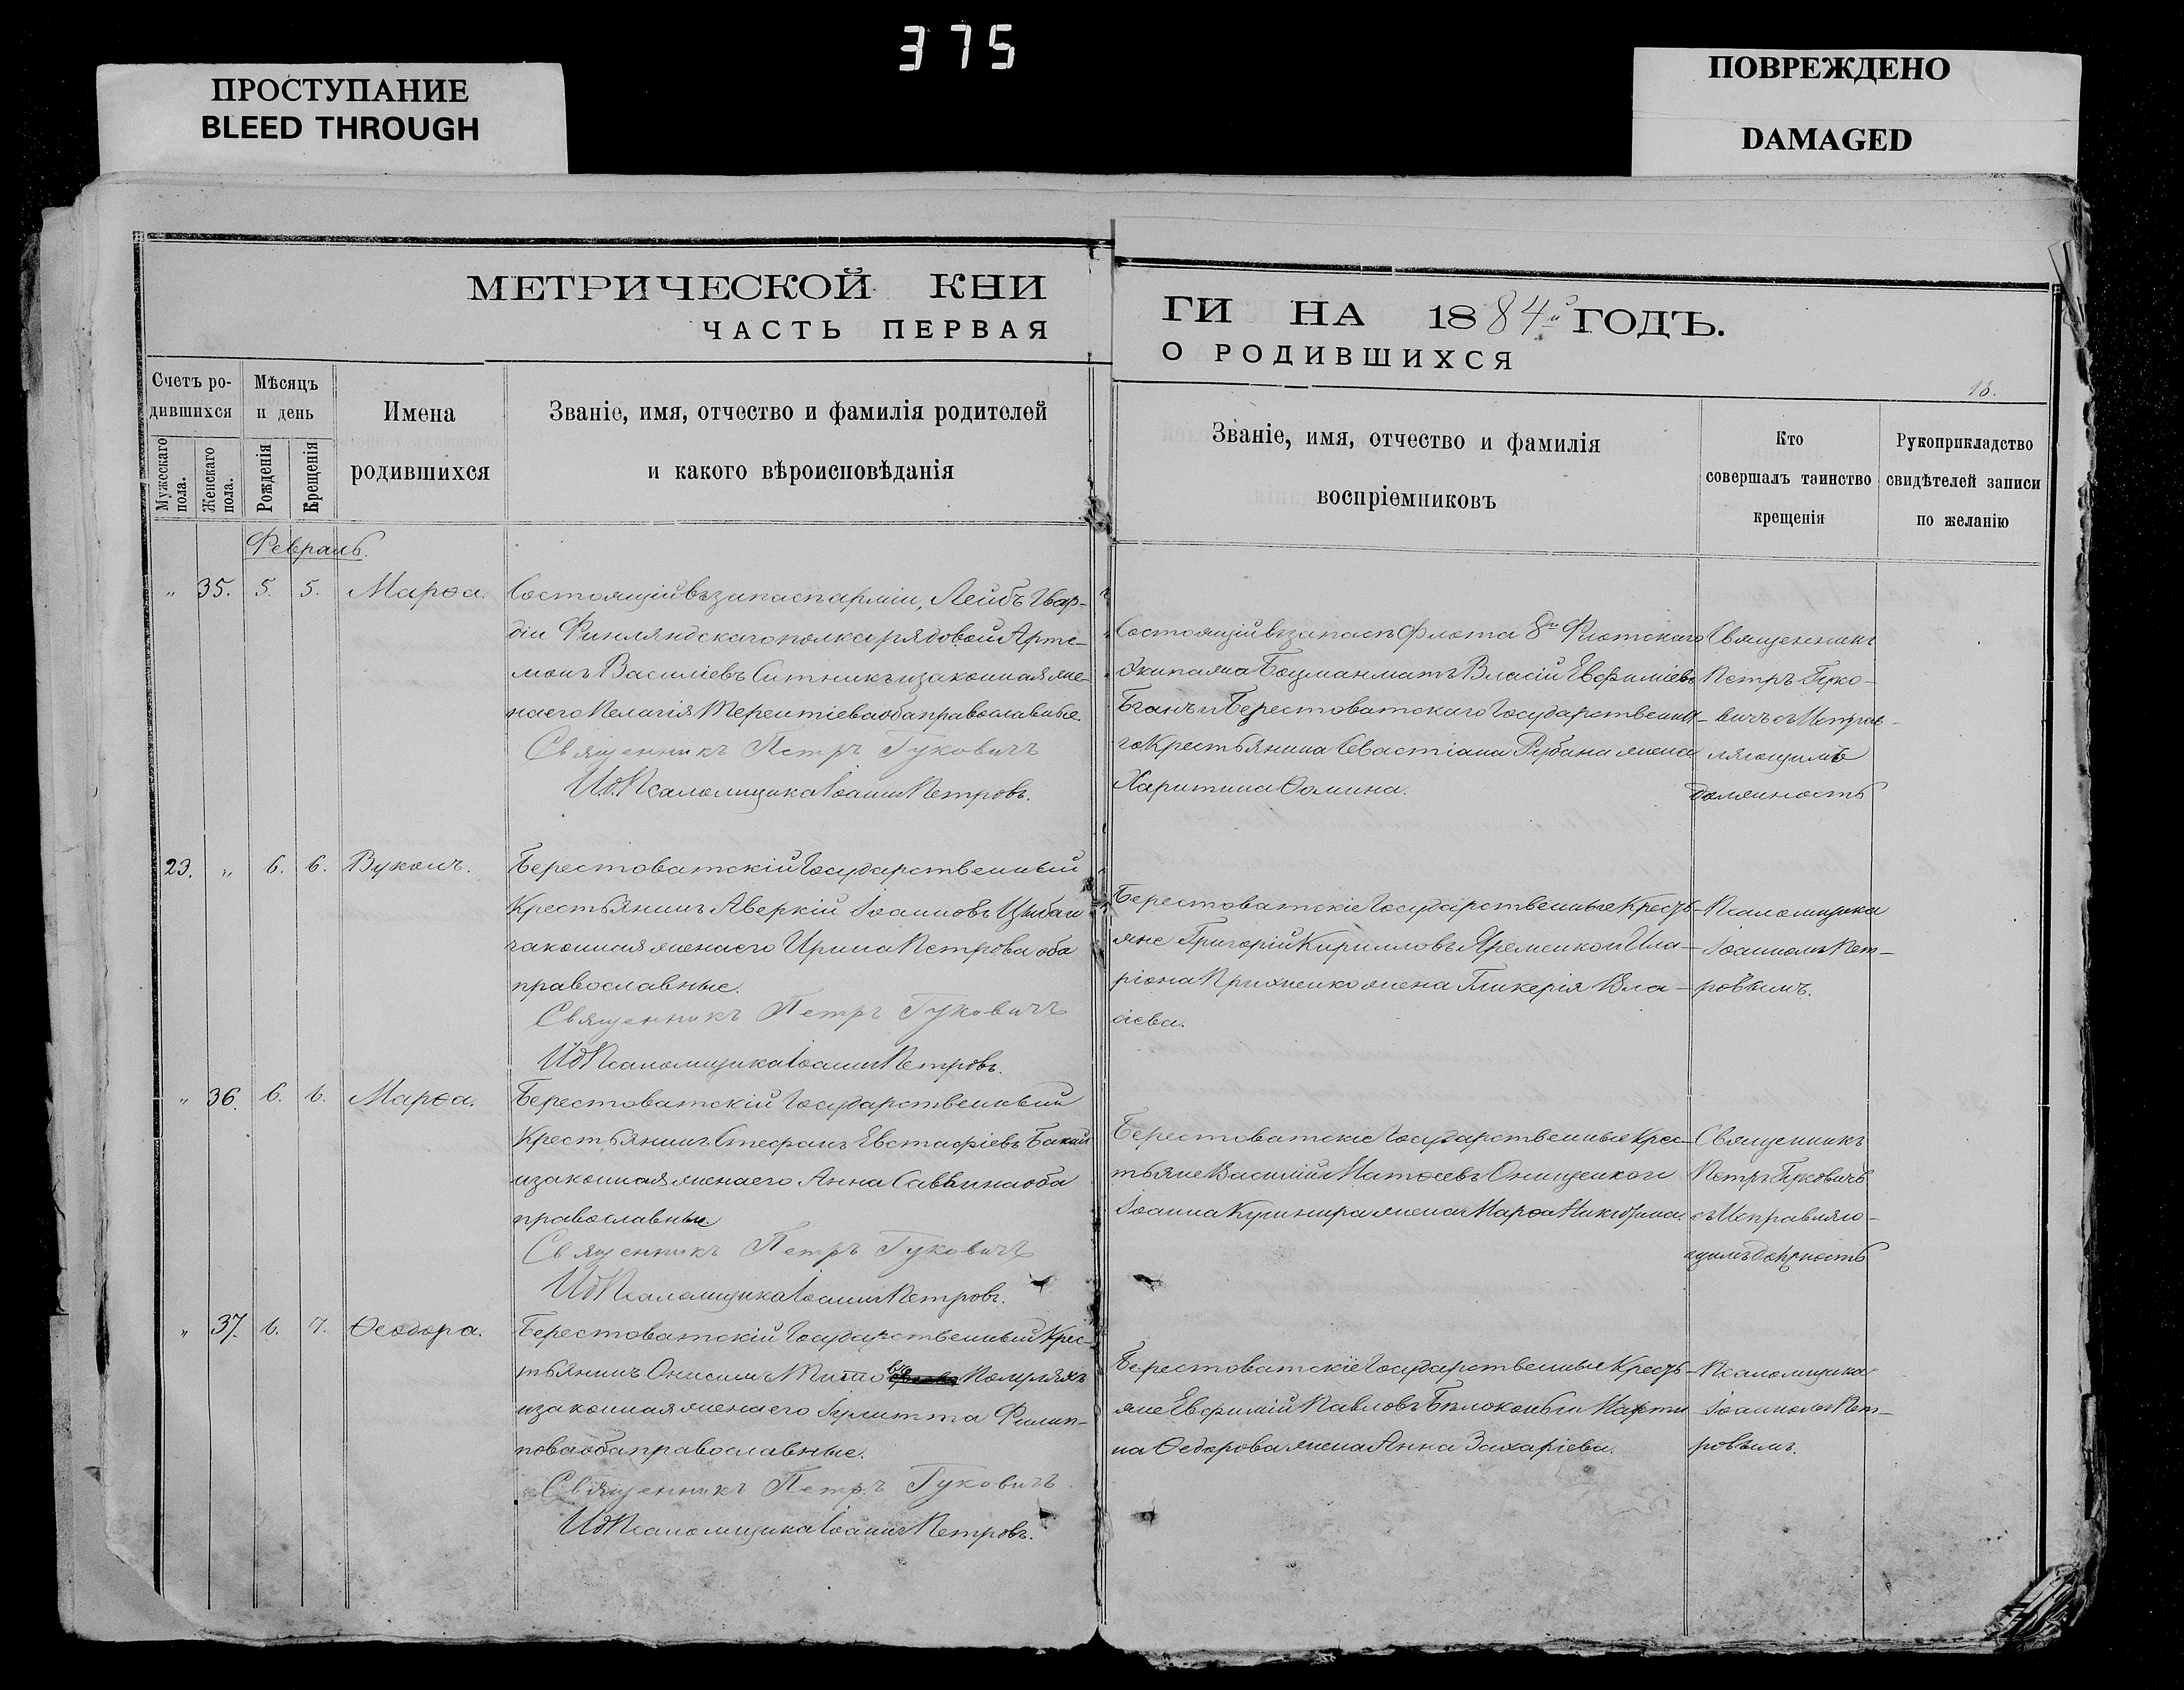 375
ПРОСТУПАНИЕ
BLEED THROUGH
ПОВРЕЖДЕНО
DAMAGED
МЕТРИЧЕСКОЙ КНИ
ЧАСТЬ ПЕРВАЯ
ГИ НА 1884й ГОДЪ.
О РОДИВШИХСЯ
18.
Счетъ ро-
дившихся
Мужскаго пола.
Женскаго пола.
Мѣсяцъ
и день
Рожденія
Крещенія
Имена
родившихся
Званіе, имя, отчество и фамилія родителей
и какого вѣроисповѣданія
Званіе, имя, отчество и фамилія
воспріемниковъ
Кто
совершалъ таинство
крещенія
Рукоприкладство
свидѣтелей записи
по желанію
Февраль.
„ 35. 5. 5. Марѳа.
Состоящій въ запасѣ арміи, Лейбъ Гвар-
діи Финляндскаго полка рядовой Арте-
монъ Василіевъ Ситникъ и законная же-
на его Пелагія Терентіева оба православные.
Священникъ Петръ Гуковичъ
И.д. Псаломщика Іоаннъ Петровъ.
Состоящій въ запасѣ флота 8го Флотскаго
Экипажа Боцманматъ Власій Евфиміевъ
Бганъ и Берестоватскаго Государственна-
го Крестьянина Севастіана Рубана жена
Харитина Ѳомина.
Священникъ
Петръ Гуко-
вичъ съ Исправ-
ляющимъ
должность
23. „ 6. 6. Вуколъ.
Берестоватскій Государственный
Крестьянинъ Аверкій Іоанновъ Цыбан
законная жена его Ирина Петрова оба
православные.
Священникъ Петръ Гуковичъ
Ид Псаломщика Іоаннъ Петровъ.
Берестоватскіе Государственные Кресть-
яне Григорій Кирилловъ Яременко и Ила-
ріона Прихненко жена Гликерія Вла-
сіева.
Псаломщика
Іоанномъ Пет-
ровымъ.
„ 36. 6. 6. Марѳа.
Берестоватскій Государственный
Крестьянинъ Стефанъ Евстафіевъ Бакай
и законная жена его Анна Саввина оба
православные.
Священникъ Петръ Гуковичъ
Ид Псаломщика Іоаннъ Петровъ.
Берестоватскіе Государственные Крес-
тьяне Василій Матѳеевъ Онищенко и
Іоанна Кушнира жена Марѳа Никитина.
Священникъ
Петръ Гуковичъ
съ Исправляю-
щимъ должность
„ 37. 6. 7. Ѳеодора.
Берестоватскій Государственный Крес-
тьянинъ Онисимъ Титовъ Помряхъ
и законная жена его Іулитта Филип-
пова оба православные.
Священникъ Петръ Гуковичъ
Ид Псаломщика Іоаннъ Петровъ.
Берестоватскіе Государственные Кресть-
яне Евфимій Павловъ Бѣлоконь и Марти-
на Ѳедорова жена Анна Захаріева.
Псаломщика
Іоанномъ Пет-
ровымъ.